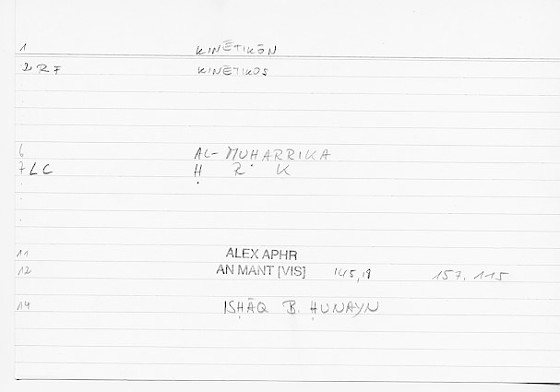 1 KINĒTIKŌN
2 RF KINĒTIKOS
6 AL-MUḤARRIKA
7 LC Ḥ R K
11 ALEX APHR
12 AN MANT [VIS] 145,19 157.115
14 ISḤĀQ B. ḤUNAYN